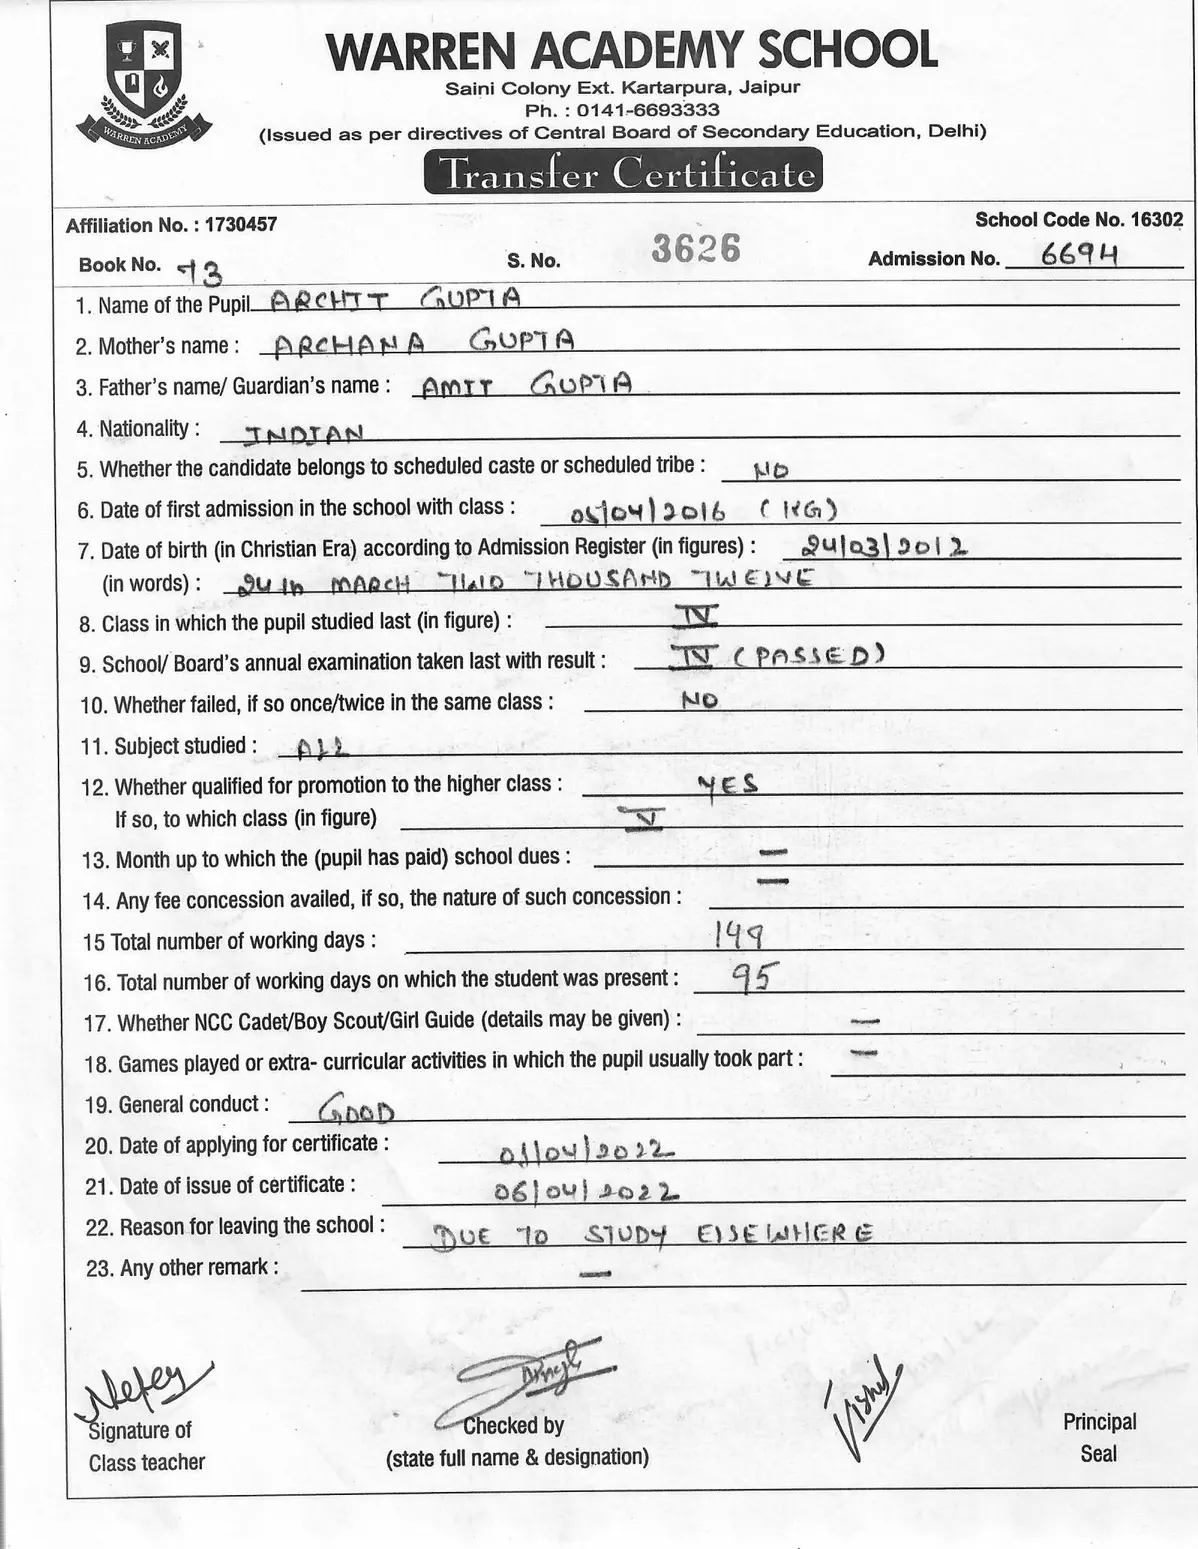 WARREN ACADEMY
WARREN ACADEMY SCHOOL
Saini Colony Ext. Kartarpura, Jaipur
Ph. : 0141-6693333
(Issued as per directives of Central Board of Secondary Education, Delhi)
Transfer Certificate
Affiliation No. : 1730457 School Code No. 16302
Book No. 73 S. No. 3626 Admission No. 6694
1. Name of the Pupil ARCHIT GUPTA
2. Mother's name : ARCHANA GUPTA
3. Father's name/ Guardian's name : AMIT GUPTA
4. Nationality : INDIAN
5. Whether the candidate belongs to scheduled caste or scheduled tribe : NO
6. Date of first admission in the school with class : 05/04/2016 (KG)
7. Date of birth (in Christian Era) according to Admission Register (in figures) : 24/03/2012
(in words) : 24th MARCH TWO THOUSAND TWELVE
8. Class in which the pupil studied last (in figure) : IV
9. School/ Board's annual examination taken last with result : IV (PASSED)
10. Whether failed, if so once/twice in the same class : NO
11. Subject studied : ALL
12. Whether qualified for promotion to the higher class : YES
If so, to which class (in figure) V
13. Month up to which the (pupil has paid) school dues : —
14. Any fee concession availed, if so, the nature of such concession : —
15 Total number of working days : 149
16. Total number of working days on which the student was present : 95
17. Whether NCC Cadet/Boy Scout/Girl Guide (details may be given) : —
18. Games played or extra- curricular activities in which the pupil usually took part : —
19. General conduct : GOOD
20. Date of applying for certificate : 01/04/2022
21. Date of issue of certificate : 06/04/2022
22. Reason for leaving the school : DUE TO STUDY ELSEWHERE
23. Any other remark : —
Signature of Checked by Principal
Class teacher (state full name & designation) Seal